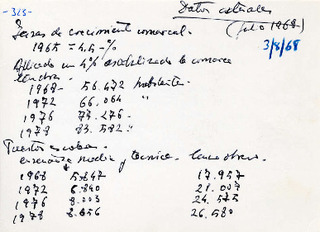 -315-
Datos actuales
(julio 1968-)
Tasas de crecimiento comercial.
1965 = 4,5-%
3/8/68
Aplicado un 4% establizado la comarca
tendra-
1968- 56.472 habitantes-
1972 66.064 "
1976 77.276- "
1978 83.582- "
Puestos escolares-
enseñanza media y tecnica-
1968 5.847 17.957
1972 6.840 21.007
1976 8.003 24.575
1978 8.656 26.580